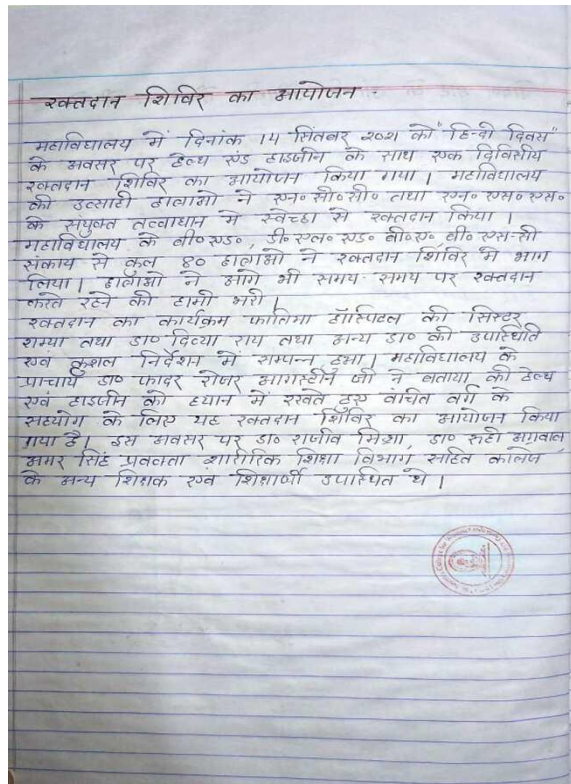 रक्तदान शिविर का आयोजन -
महाविद्यालय में दिनांक 14 सितंबर 2021 को "हिन्दी दिवस"
के अवसर पर हेल्थ एंड हाइजीन के साथ एक दिवसीय
रक्तदान शिविर का आयोजन किया गया । महाविद्यालय
की उत्साही छात्राओं ने एन॰ सी॰ सी॰ तथा एन॰ एस॰ एस॰
के संयुक्त तत्वाधान में स्वेच्छा से रक्तदान किया ।
महाविद्यालय के बी॰एड॰, डी॰एल॰ एड॰ बी॰ए॰ बी॰ एस-सी
संकाय से कुल ४० छात्राओं ने रक्तदान शिविर में भाग
लिया। छात्राओं ने आगे भी समय-समय पर रक्तदान
करते रहने की हामी भरी ।
रक्तदान का कार्यक्रम फातिमा हॉस्पिटल की सिस्टर
शम्या तथा डा॰ दिव्या राय तथा अन्य डा॰ की उपस्थिति
एवं कुशल निर्देशन में सम्पन्न हुआ । महाविद्यालय के
प्राचार्य डा॰ फादर रोजर आगस्टीन जी ने बताया की हेल्थ
एवं हाइजीन को ध्यान में रखते हुए वंचित वर्ग के
सहयोग के लिए यह रक्तदान शिविर का आयोजन किया
गया है। इस अवसर पर डा॰ राजीव मिश्रा, डा॰ रूही अग्रवाल
अमर सिंह प्रवक्ता शारीरिक शिक्षा विभाग, सहित कॉलेज
के अन्य शिक्षक एवं शिक्षार्थी उपस्थित थे ।